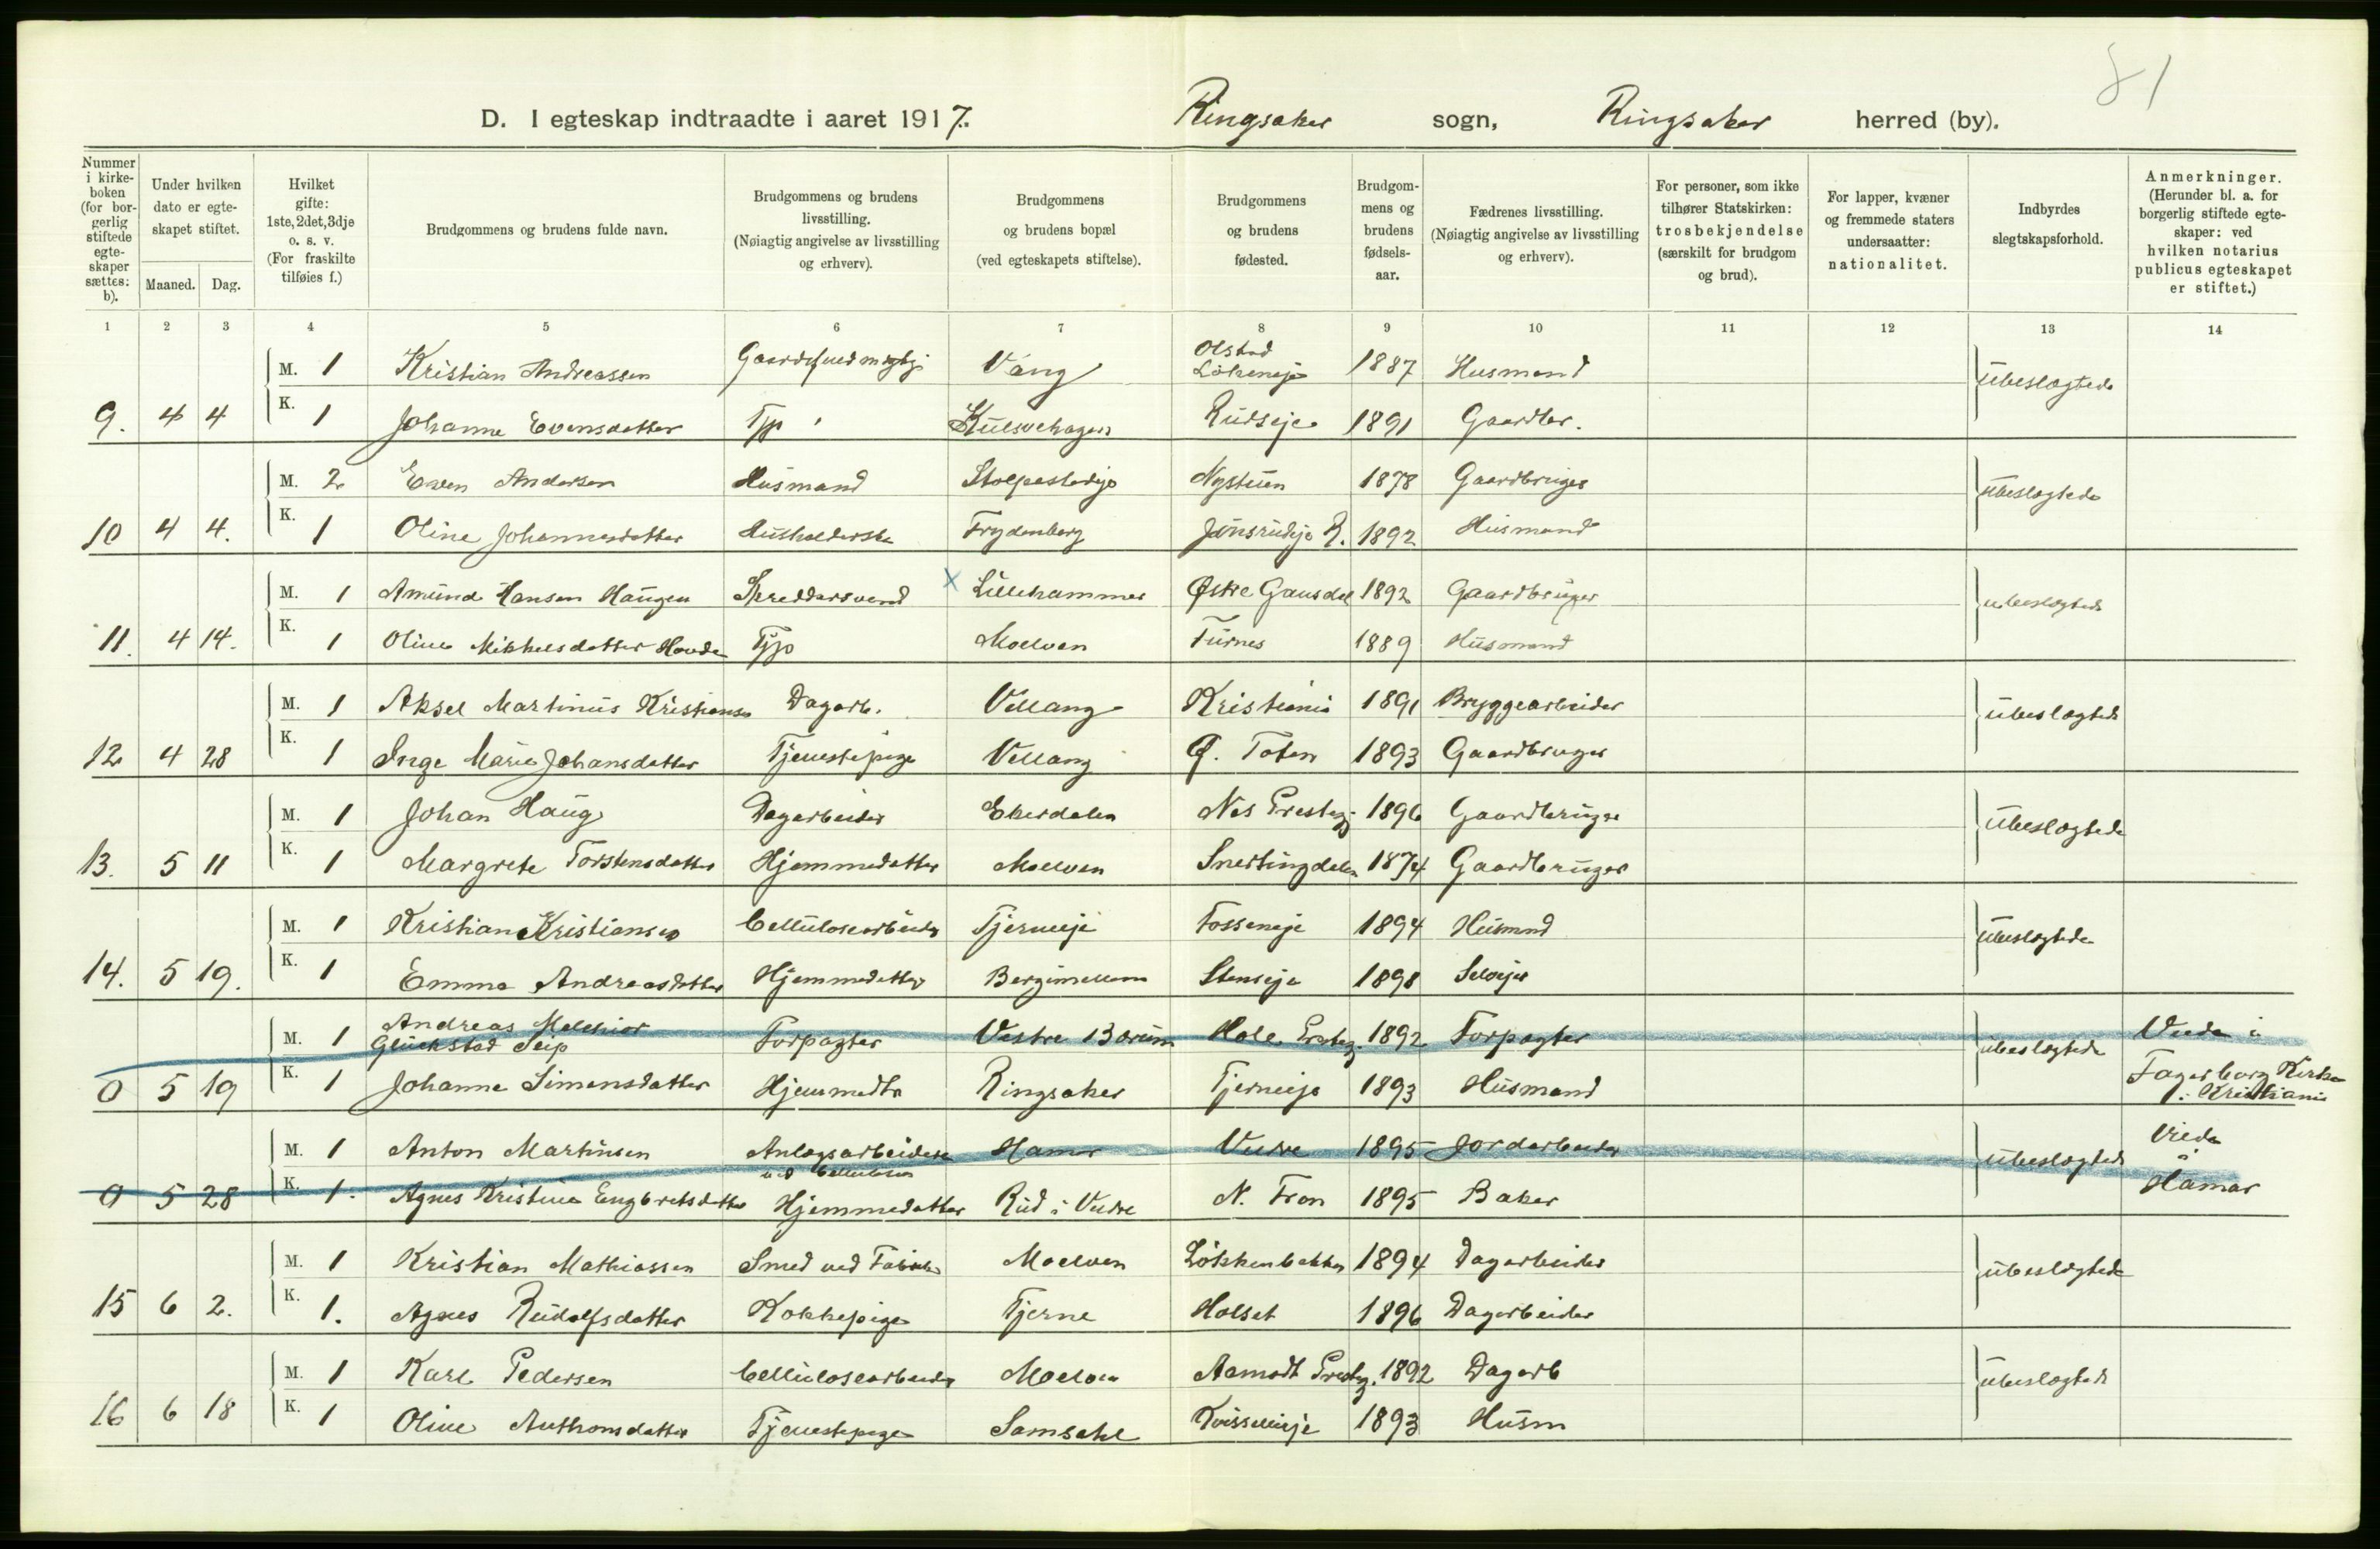 81
D. I egteskap indtraadte i aaret 1917. Ringsaker sogn, Ringsaker herred (by).
Nummer i kirkeboken (for borgerlig stiftede egteskaper sættes: b).
Under hvilken dato er egteskapet stiftet.
Maaned. Dag.
Hvilket gifte: 1ste, 2det, 3dje o. s. v. (For fraskilte tilføies f.)
Brudgommens og brudens fulde navn.
Brudgommens og brudens livsstilling. (Nøiagtig angivelse av livsstilling og erhverv).
Brudgommens og brudens bopæl (ved egteskapets stiftelse).
Brudgommens og brudens fødested.
Brudgommens og brudens fødselsaar.
Fædrenes livsstilling. (Nøiagtig angivelse av livsstilling og erhverv).
For personer, som ikke tilhører Statskirken: trosbekjendelse (særskilt for brudgom og brud).
For lapper, kvæner og fremmede staters undersaatter: nationalitet.
Indbyrdes slegtskapsforhold.
Anmerkninger. (Herunder bl. a. for borgerlig stiftede egteskaper: ved hvilken notarius publicus egteskapet er stiftet.)
1 2 3 4 5 6 7 8 9 10 11 12 13 14
M. 1 Kristian Andreassen Vang Olstad Løkeneje 1887 Husmand ubeslægtede
9. 4 4 K. 1 Johanne Evensdatter Tjp Rudseje 1891 Gaardbr.
M. 2 Even Andersen Husmand Stolpestadeje Nystuen 1878 Gaardbruger ubeslægtede
10 4 4. K. 1 Oline Johannesdatter Husholderske Frydenberg Jønsrudeje R. 1892 Husmand
M. 1 Amund Hansen Haugen Skreddersvend x Lillehammer Østre Gausdal 1892 Gaardbruger ubeslægtede
11. 4 14. K. 1 Oline Mikkelsdatter Tjp Moelven Furnes 1889 Husmand
M. 1 Aksel Martinus Kristianse Dagarb. Vellang Kristiania 1891 Bryggearbeider ubeslægtede
12 4 28 K. 1 Inga Marie Johansdatter Tjenestepige Vellang Ø. Toten 1893 Gaardbruger
M. 1 Johan Haug Dagarbeider Ekerdalen Nes Prestegj. 1896 Gaardbruger ubeslægtede
13. 5 11 K. 1 Margrete Torstensdatter Hjemmedatter Moelven Snertingdalen 1874 Gaardbruger
M. 1 Kristian Kristiansen Cellulosearbeider Tjerneeje Fosseneje 1894 Husmand ubeslægtede
14. 5 19. K. 1 Emma Andreasdatter Hjemmedatter Bergimellem Stenseje 1898 Selveier
M. 1 Andreas Melchior Glückstad Seip Forpagter Vestre Bærum Hole Prestegj. 1892 Forpagter ubeslægtede Viede i
0 5 19 K. 1 Johanne Simensdatter Hjemmedtr Ringsaker Tjerneeje 1893 Husmand Fagerborg Kirke i Kristiania
M. 1 Anton Martinsen Anlægsarbeider ved Cellulosen Hamar Veldre 1895 Jordarbeider ubeslægtede Viede i
0 5 28 K. 1. Agnes Kristine Engbretsdatter Hjemmedatter Rud i Veldre N. Fron 1895 Baker Hamar
M. 1 Kristian Mathiassen Smed ved Fabrikk Moelven Løkkenbakken 1894 Dagarbeider ubeslægtede
15 6 2. K. 1. Agnes Rudolfsdatter Kokkepige Tjerne Holset 1896 Dagarbeider
M. 1 Karl Pedersen Cellulosearbeider Moelven Aamodt Prestegj. 1892 Dagarb ubeslægtede
16 6 18 K. 1 Oline Anthonsdatter Tjenestepige Samsahl 1893 Husm